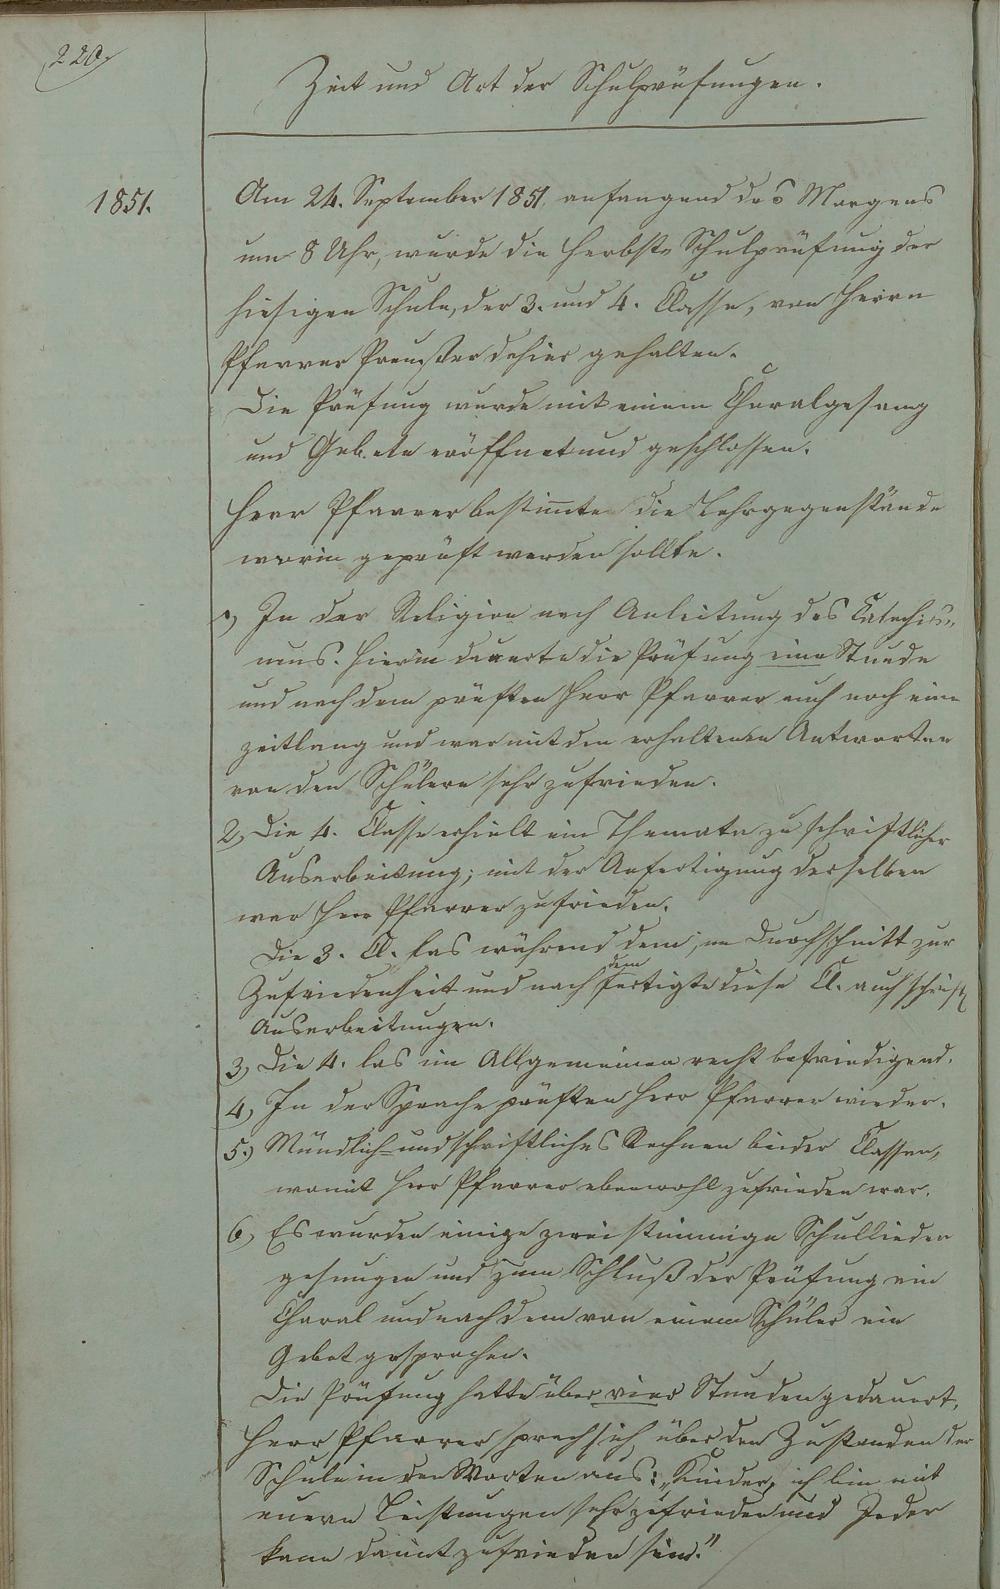 220.
Zeit und Art der Schulprüfungen.
1851.
Am 24. September 1851, anfangend des Morgens
um 8 Uhr, wurde die Herbst-Schulprüfung der
hiesigen Schule, der 3. und 4. Classe, von Herrn
Pfarrer dahier gehalten.
Die Prüfung wurde mit einem Choralgesang
und Gebete eröffnet und geschlossen.
Herr Pfarrer bestimmte die Lehrgegenstände
worin geprüft werden sollte.
1) In der Religion nach Anleitung des Catechis-
mus. Hierin dauerte die Prüfung eine Stunde
und nachdem prüften Herr Pfarrer auch noch eine
zeitlang und war mit den erhaltenen Antworten
von den Schülern sehr zufrieden.
2, Die 4. Classe erhielt ein Themata zu schriftlicher
Ausarbeitung; mit der Anfertigung derselben
war Herr Pfarrer zufrieden.
Die 3. Cl. las während dem, im Durchschnitt zur
Zufriedenheit und nachdem fertigte diese Cl. auch schriftl
Ausarbeitungen.
3, Die 4. las im Allgemeinen recht befriedigend.
4, In der Sprache prüften Herr Pfarrer wieder.
5.) Mündlich- und schriftliches Rechnen beider Classen,
womit Herr Pfarrer ebenwohl zufrieden war.
6, Es wurden einige zweistimmige Schullieder
gesungen und zum Schluß der Prüfung ein
Choral und nachdem von einem Schüler ein
Gebet gesprochen.
Die Prüfung hatte über vier Stunden gedauert.
Herr Pfarrer sprach sich über den Zustanden der
Schule in den Worten aus: „Kinder, ich bin mit
euern Leistungen sehr zufrieden und Jeder
kann damit zufrieden sein."